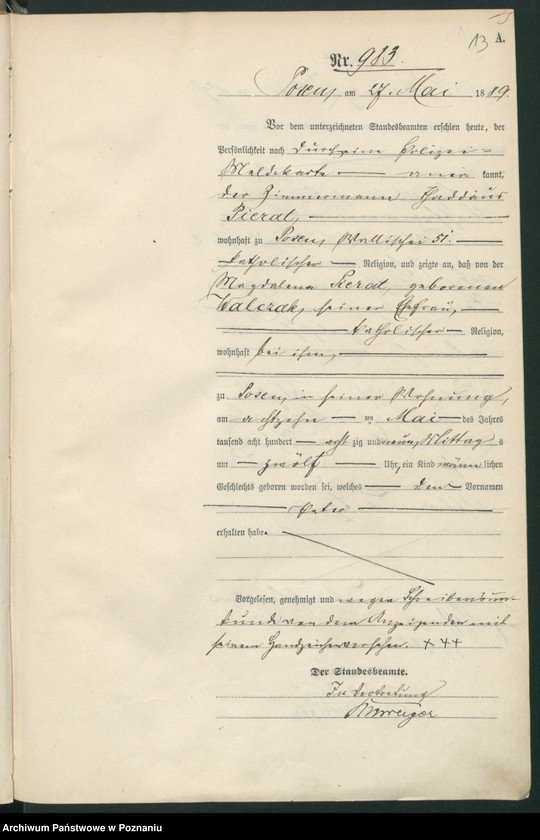 13 A.
Nr. 983.
Posen, am 27. Mai 1889.
Vor dem unterzeichneten Standesbeamten erschien heute, der
Persönlichkeit nach durch eine Polizei-
Meldekarte aner kannt,
der Zimmermann Thaddäus
Pierat,
wohnhaft zu Posen, Wallischei 51.
katholischer Religion, und zeigte an, daß von der
Magdalena Pierat, geborenen
Walczak, seiner Ehefrau,
katholischer Religion,
wohnhaft bei ihm,
zu Posen, in seiner Wohnung,
am achtzehn ten Mai des Jahres
tausend acht hundert acht zig und neun, Mittag s
um zwölf Uhr, ein Kind männ lichen
Geschlechts geboren worden sei, welches den Vornamen
Peter
erhalten habe.
Vorgelesen, genehmigt und wegen Schreibensun-
kunde von dem Anzeigenden mit
seinem Handzeichen versehen. +++
Der Standesbeamte.
In Vertretung
Archiwum Państwowe w Poznaniu